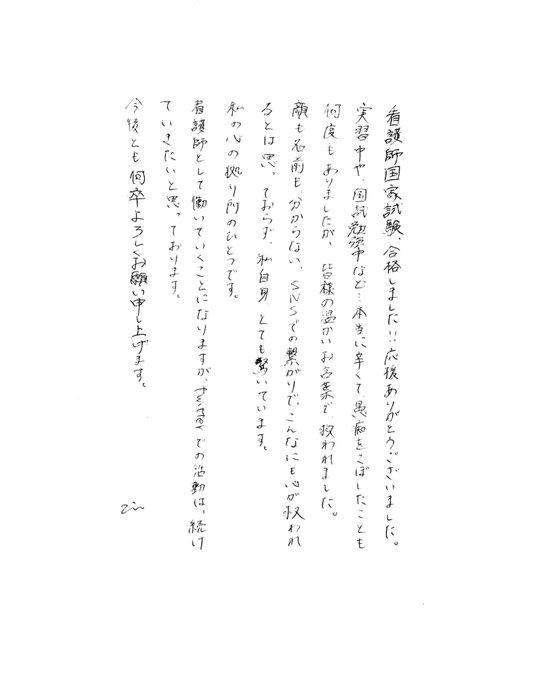 看護師国家試験、合格しました!!応援ありがとうございました。
実習中や、国試勉強中など…本当に辛くて、愚痴をこぼしたことも
何度もありましたが、皆様の温かいお言葉で、救われました。
顔も名前も分からない、SNSでの繋がりで、こんなにも心が救われ
るとは思っておらず、私自身とても驚いています。
私の心の拠り所のひとつです。
看護師として働いていくことになりますが、での活動は、続け
ていきたいと思っております。
今後とも何卒よろしくお願い申し上げます。